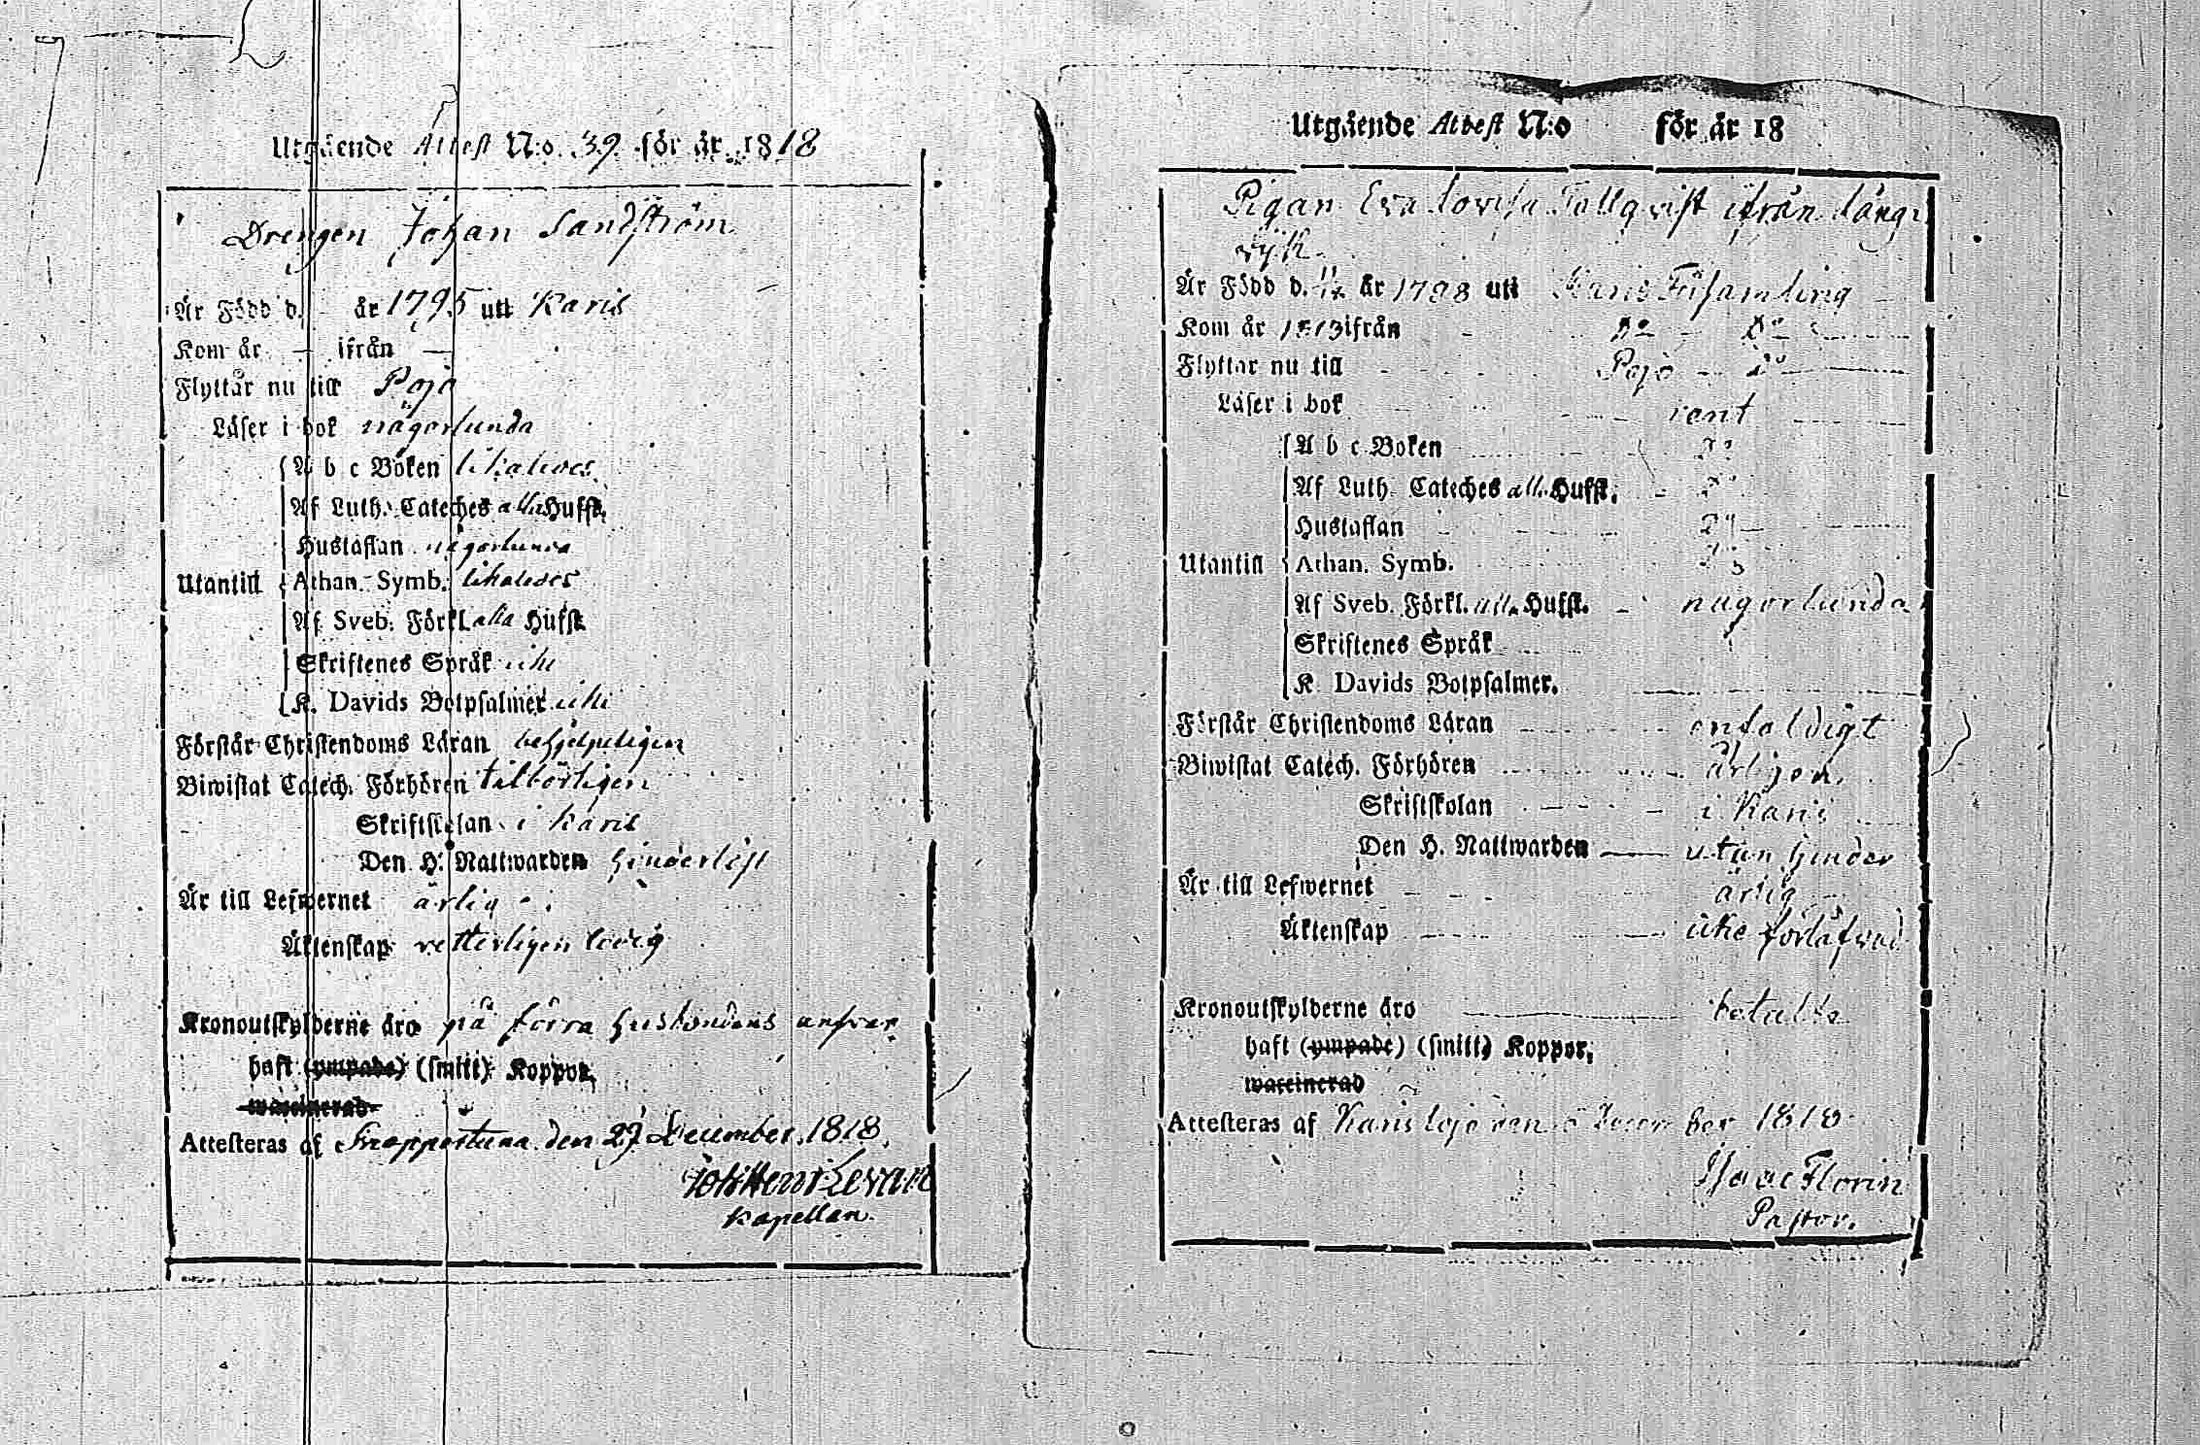 Utgående Attest N:o 39 för år 1818
Drengen Johan Sandström
Är Född d. år 1795 uti Karis
Kom år — ifrån —
Flyttar nu till Pojo
Läser i bok någorlunda
A b c Boken likaledes
Af Luth. Cateches alla Hufst.
Hustaflan någorlunda
Utantill Athan. Symb. likaledes
Af Sveb. Förkl. alla Hufst.
Skriftenes Språk icke
K. Davids Botpsalmer icke
Förstår Christendoms Läran behjelpeligen
Biwistat Catech. Förhören tilbörligen
Skriftskolan i Karis
Den H. Nattwarden hinderlöst
Är till Lefwernet ärlig
Äktenskap retterligen ledig
Kronoutskylderne äro på förra husbondens answar
haft (ympade) (smitt) Koppor,
waccinerad
Attesteras af Snappertuna den 29 December 1818.
Joh Henr Levan
Kapellan.
Utgående Attest N:o för år 18
Pigan Eva Lovisa Fallqvist ifrån Lång-
vik
Är Född d. 11/12 år 1798 uti Karis Församling
Kom år 1813 ifrån D:o D:o
Flyttar nu till Pojo D:o
Läser i bok rent
A b c Boken D:o
Af Luth. Cateches alla Hufst. D:o
Hustaflan D:o
Utantill Athan. Symb. D:o
Af Sveb. Förkl. alla Hufst. någorlunda
Skriftenes Språk
K. Davids Botpsalmer.
Förstår Christendoms Läran enfaldigt
Biwistat Catech. Förhören årligen
Skriftskolan i Karis
Den H. Nattwarden utan hinder
Är till Lefwernet ärlig
Äktenskap icke förlåfwad
Kronoutskylderne äro betalte
haft (ympade) (smitt) Koppor,
waccinerad
Attesteras af Karislojo den December 1818
Isaac Florin
Pastor.